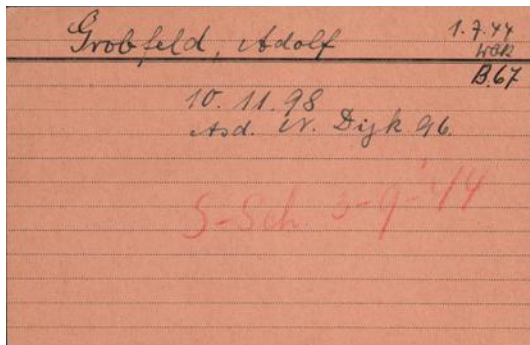 Grobfeld, Adolf
1.7.44
WBK
B.67
10.11.98
Asd. N. Dijk 96.
S-Sch. 3-9-'44